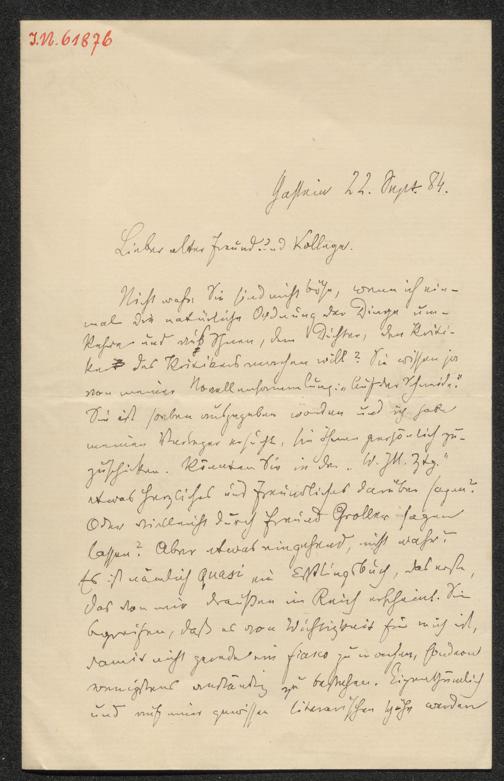 J.N. 61876
Gastein 22. Sept. 84.
Lieber alter Freund und Kollege.
Nicht wahr Sie sind nicht böse, wenn ich ein-
mal die natürliche Ordnung der Dinge um-
kehre und aus Ihnen, dem Dichter, den Kriti-
ker des Kritikers machen will? Sie wissen ja
von meiner Novellensammlung: "Auf der Schneide."
Sie ist soeben ausgegeben worden und ich habe
meinen Verleger ersucht, sie Ihnen persönlich zu-
zuschicken. Könnten Sie in der "W. Ill. Ztg."
etwas Herzliches und Freundliches darüber sagen?
Oder vielleicht durch Freund Groller sagen
lassen? Aber etwas eingehend, nicht wahr?
Es ist nämlich quasi ein Erstlingsbuch, das erste,
das von mir draußen im Reich erscheint. Sie
begreifen, daß es von Wichtigkeit für mich ist,
damit nicht gerade ein Fiasco zu machen, sondern
wenigstens anständig zu bestehen. Eigenthümlich
und aus einer gewissen literarischen Höhe werden